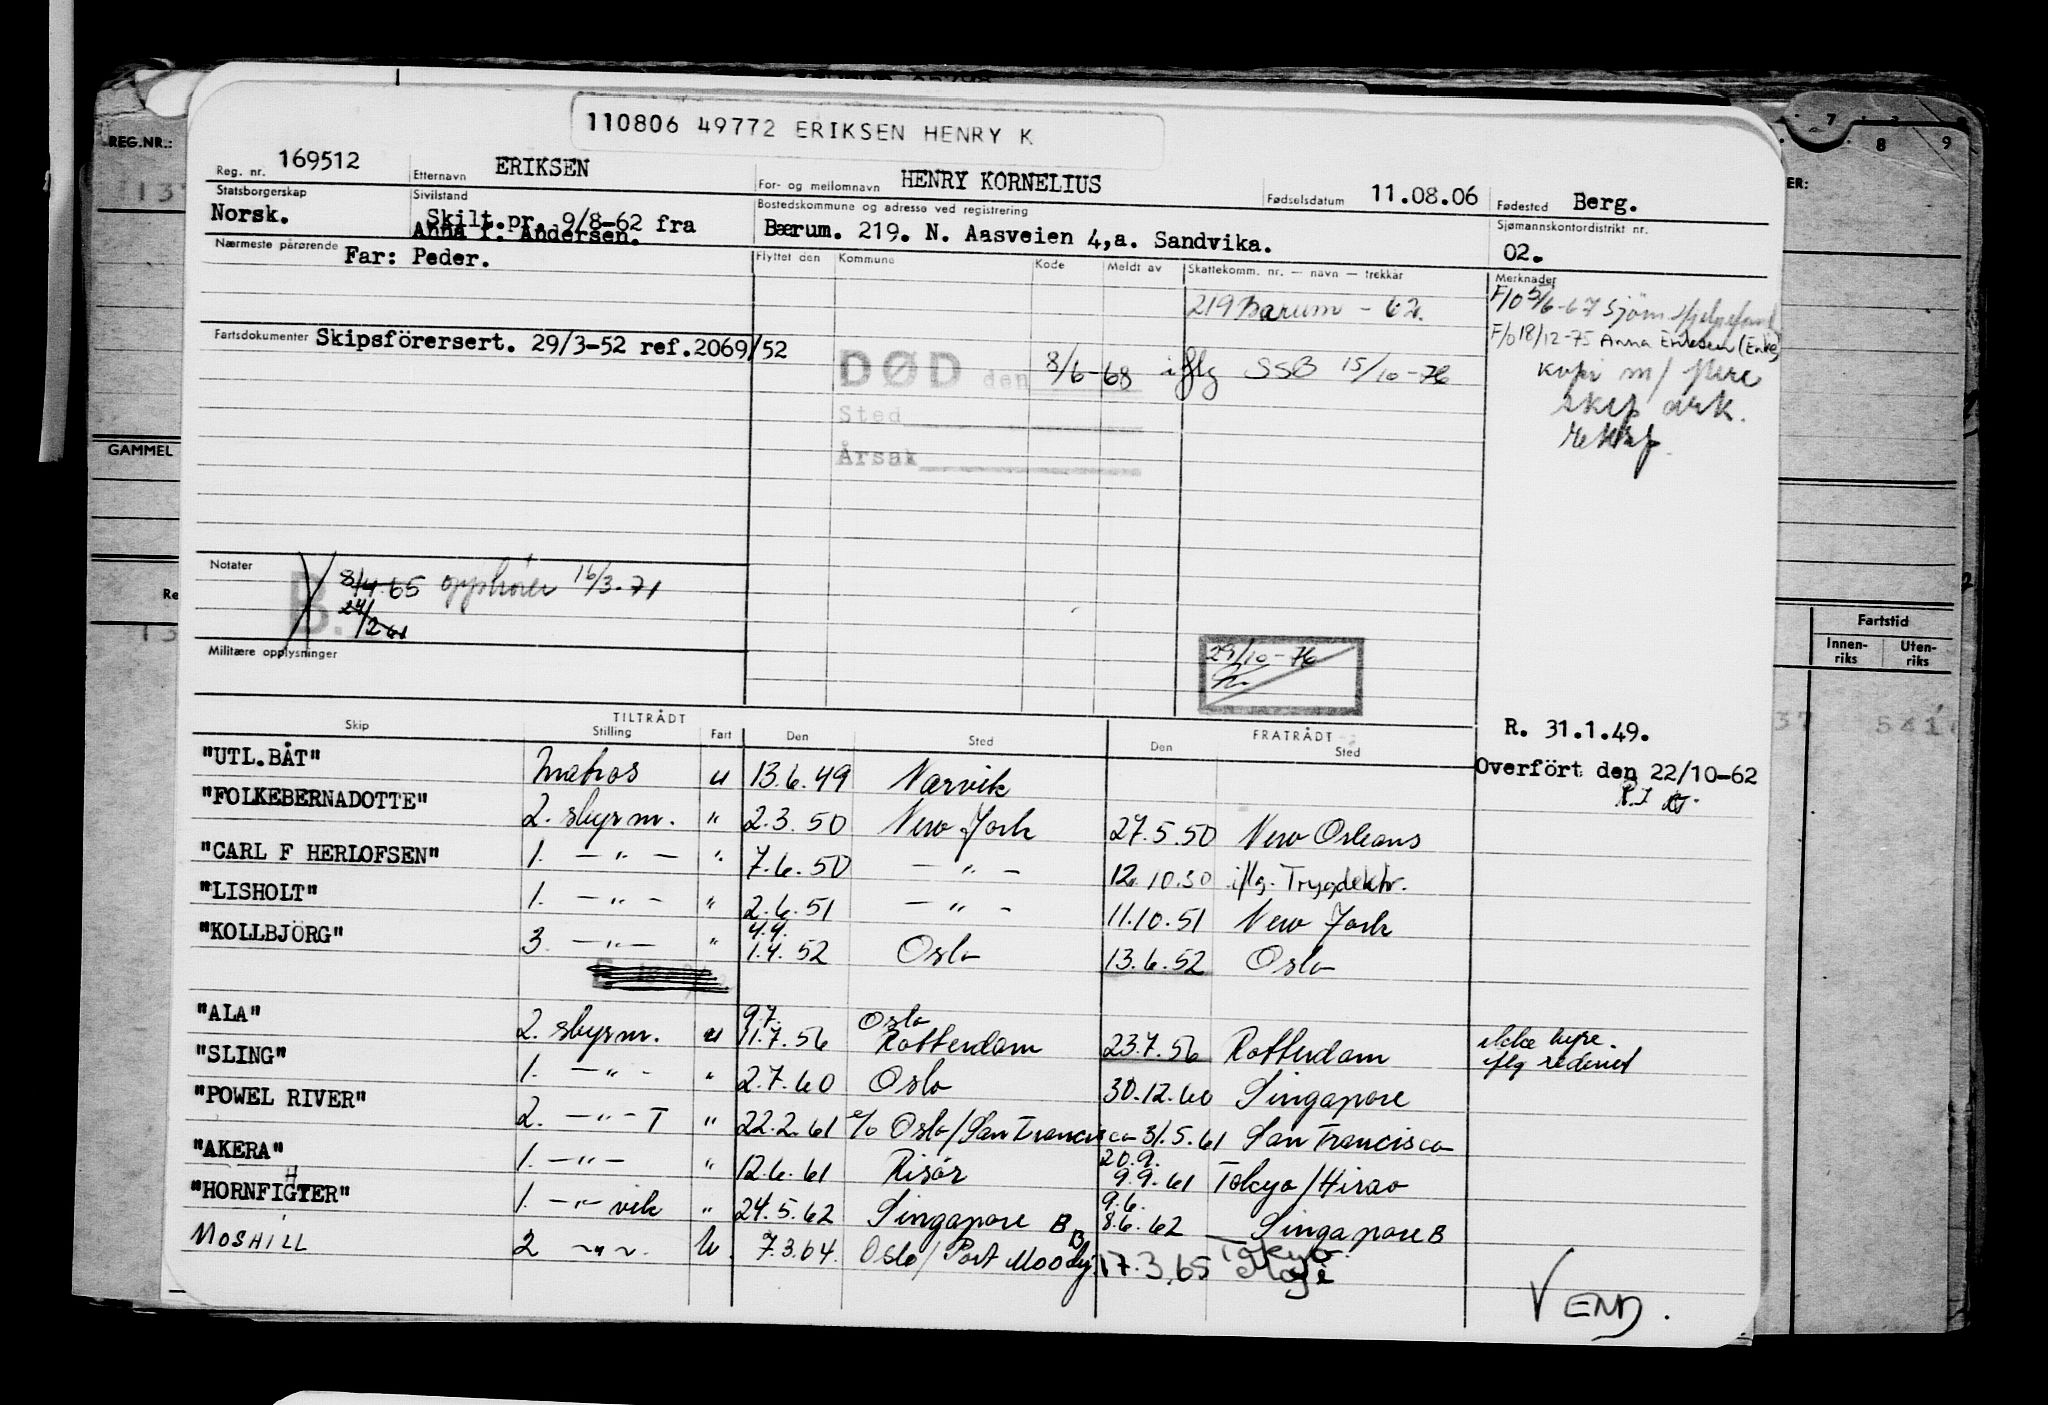 110806 49772 ERIKSEN HENRY K
REG.NR.:
Reg. nr. 169512 Etternavn ERIKSEN For- og mellomnavn HENRY KORNELIUS Fødselsdatum 11.08.06 Fødested Berg.
Statsborgerskap Sivilstand Bostedskommune og adresse ved registrering Sjømannskontordistrikt nr.
Norsk. Skilt.pr. 9/8-62 fra Bærum. 219. N. Aasveien 4,a. Sandvika. 02.
Anna I. Andersen.
Nærmeste pårørende Far: Peder. Flyttet den Kommune Kode Meldt av Skattekomm. nr. — navn — trekkår Merknader
219 Bærum - 62. F/O 5/6-67 Sjøm.
F/O 18/12-75 Anna Eriksen (Enke)
Fartsdokumenter Skipsförersert. 29/3-52 ref.2069/52
DØD den 8/6-68 iflg SSB 15/10-76
kopi m/ flere
skip ark.
Sted
Årsak
GAMMEL
Notater
B. 8/4-65 opphører 16/3-71
24/
Militære opplysninger
29/10-76
Fartstid
Innen-riks Uten-riks
R. 31.1.49.
Overfört den 22/10-62
Skip TILTRÅDT Stilling Fart Den Sted FRATRÅDT Den Sted
"UTL.BÅT" Matros u 13.6.49 Narvik
"FOLKEBERNADOTTE" 2. styrm. " 2.3.50 New York 27.5.50 New Orleans
"CARL F HERLOFSEN" 1. — " — " 7.6.50 — " — 12.10.50 iflg. Trygdektr.
"LISHOLT" 1. — " — " 2.6.51 — " — 11.10.51 New York
4.4.
"KOLLBJÖRG" 3. — " — " 1.4.52 Oslo 13.6.52 Oslo
9.7. Oslo
"ALA" 2. styrm. u 11.7.56 Rotterdam 23.7.56 Rotterdam ikke hyre.
iflg rederiet
"SLING" 1. — " — " 2.7.60 Oslo 30.12.60 Singapore
"POWEL RIVER" 2. — " — T " 22.2.61 e/o Oslo/San Francisco 31.5.61 San Francisco
20.9.
"AKERA" 1. — " — " 12.6.61 Risör 9.9.61 Tokyo/Hirao
9.6.
"HORNFIGHTER" 1. — " — vik " 24.5.62 Singapore B 8.6.62 Singapore B
MOSHILL 2 — " — U. 7.3.64 Oslo/Port Moody 17.3.65 Tokyo
VEND.